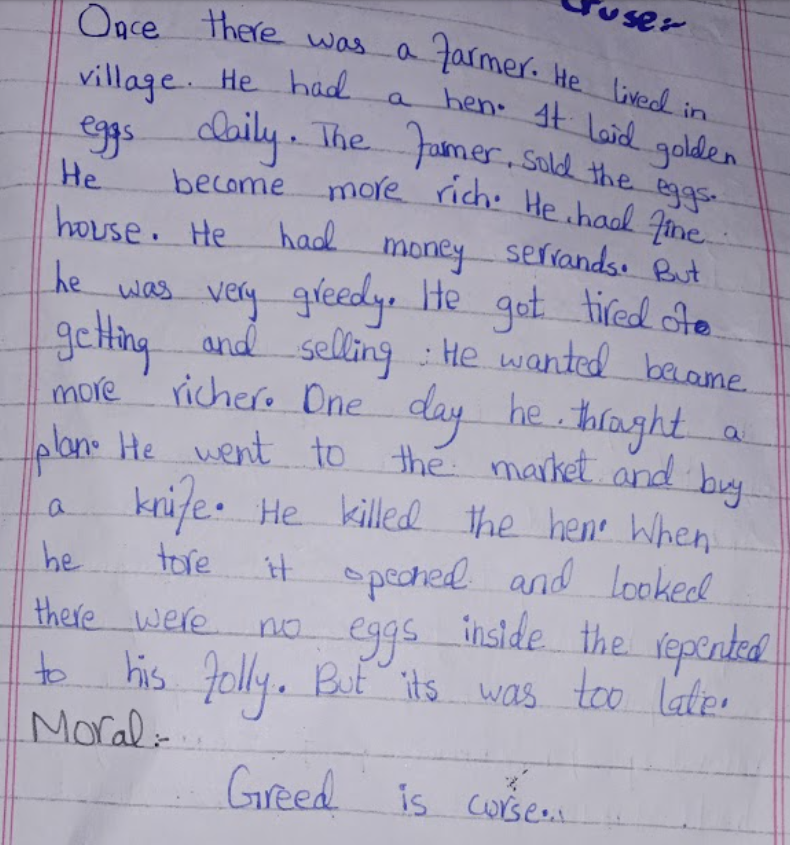 cruse:-
Once there was a farmer. He lived in
village. He had a hen. It laid golden
eggs daily. The famer, sold the eggs.
He become more rich. He had fine
house. He had money servands. But
he was very greedy. He got tired ofe
getting and selling : He wanted became
more richer. One day he . throught a
plan. He went to the market and buy
a knife. He killed the hen. When
he tore it opeohed and looked
there were no eggs inside the repented
to his folly. But its was too late.
Moral:-
Greed is curse...